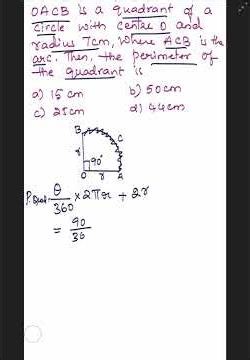 OACB is a quadrant of a
circle with centre O and
radius 7cm, where ACB is the
arc. Then, the perimeter of
the quadrant is
a) 15 cm b) 50cm
c) 25cm d) 44cm
B
C
r
90°
O r A
P. Quad: θ/360 × 2πr + 2r
= 90/36